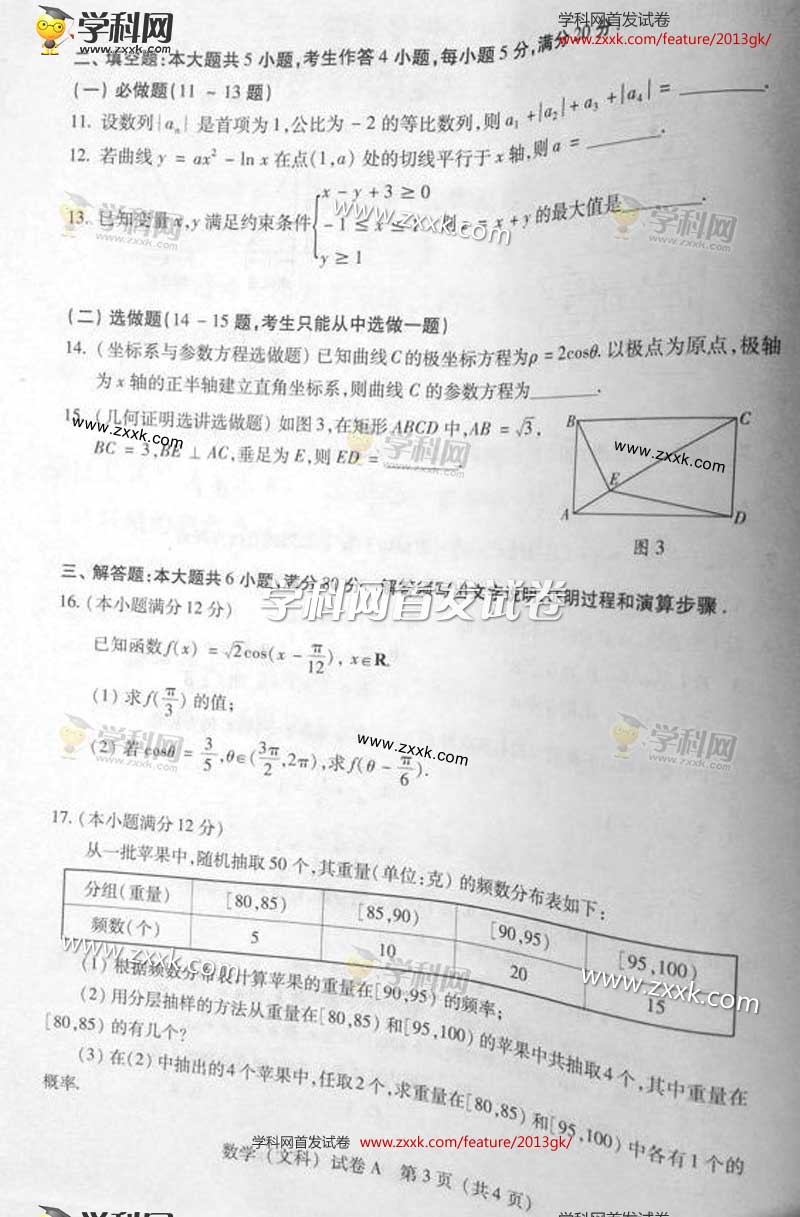 学科网
www.zxxk.com
学科网首发试卷
www.zxxk.com/feature/2013gk/
二、填空题:本大题共5小题,考生作答4小题,每小题5分,满分20分.
(一) 必做题(11 ~ 13题)
11. 设数列{aₙ} 是首项为1,公比为 -2 的等比数列,则 a₁ +|a₂|+ a₃ +|a₄| = ______.
12. 若曲线 y = ax² - ln x 在点(1,a) 处的切线平行于 x 轴,则 a = ______.
13. 已知变量 x,y 满足约束条件 { x - y + 3 ≥ 0
-1 ≤ x ≤
y ≥ 1
= x + y 的最大值是______.
www.zxxk.com
学科网
www.zxxk.com
学科网
www.zxxk.com
(二) 选做题(14 - 15 题,考生只能从中选做一题)
14. (坐标系与参数方程选做题) 已知曲线 C 的极坐标方程为ρ = 2cosθ. 以极点为原点,极轴
为 x 轴的正半轴建立直角坐标系,则曲线 C 的参数方程为______.
15. (几何证明选讲选做题) 如图3,在矩形 ABCD 中,AB = √3,
BC = 3,BE ⊥ AC,垂足为 E,则 ED = ______.
www.zxxk.com
学科网
www.zxxk.com
B
C
www.zxxk.com
E
A
D
图 3
三、解答题:本大题共6小题,满分80分.
明过程和演算步骤.
学科网首发试卷
16. (本小题满分12分)
已知函数f(x) = √2cos(x - π/12), x∈R.
(1) 求f(π/3) 的值;
(2) 若 cosθ = 3/5,θ∈(3π/2,2π),求f(θ - π/6).
学科网
www.zxxk.com
www.zxxk.com
学科网
www.zxxk.com
17. (本小题满分12分)
从一批苹果中,随机抽取50个,其重量(单位:克) 的频数分布表如下:
分组(重量) [80,85) [85,90) [90,95) [95,100)
频数(个) 5 10 20 15
www.zxxk.com
学科网
www.zxxk.com
www.zxxk.com
(1) 根据频数分布表计算苹果的重量在[90,95) 的频率;
(2) 用分层抽样的方法从重量在[80,85) 和[95,100) 的苹果中共抽取4个,其中重量在
[80,85) 的有几个?
(3) 在(2) 中抽出的4个苹果中,任取2个,求重量在[80,85) 和[95,100) 中各有1个的
概率.
学科网首发试卷
www.zxxk.com/feature/2013gk/
数学 (文科) 试卷A 第3页 (共4页)